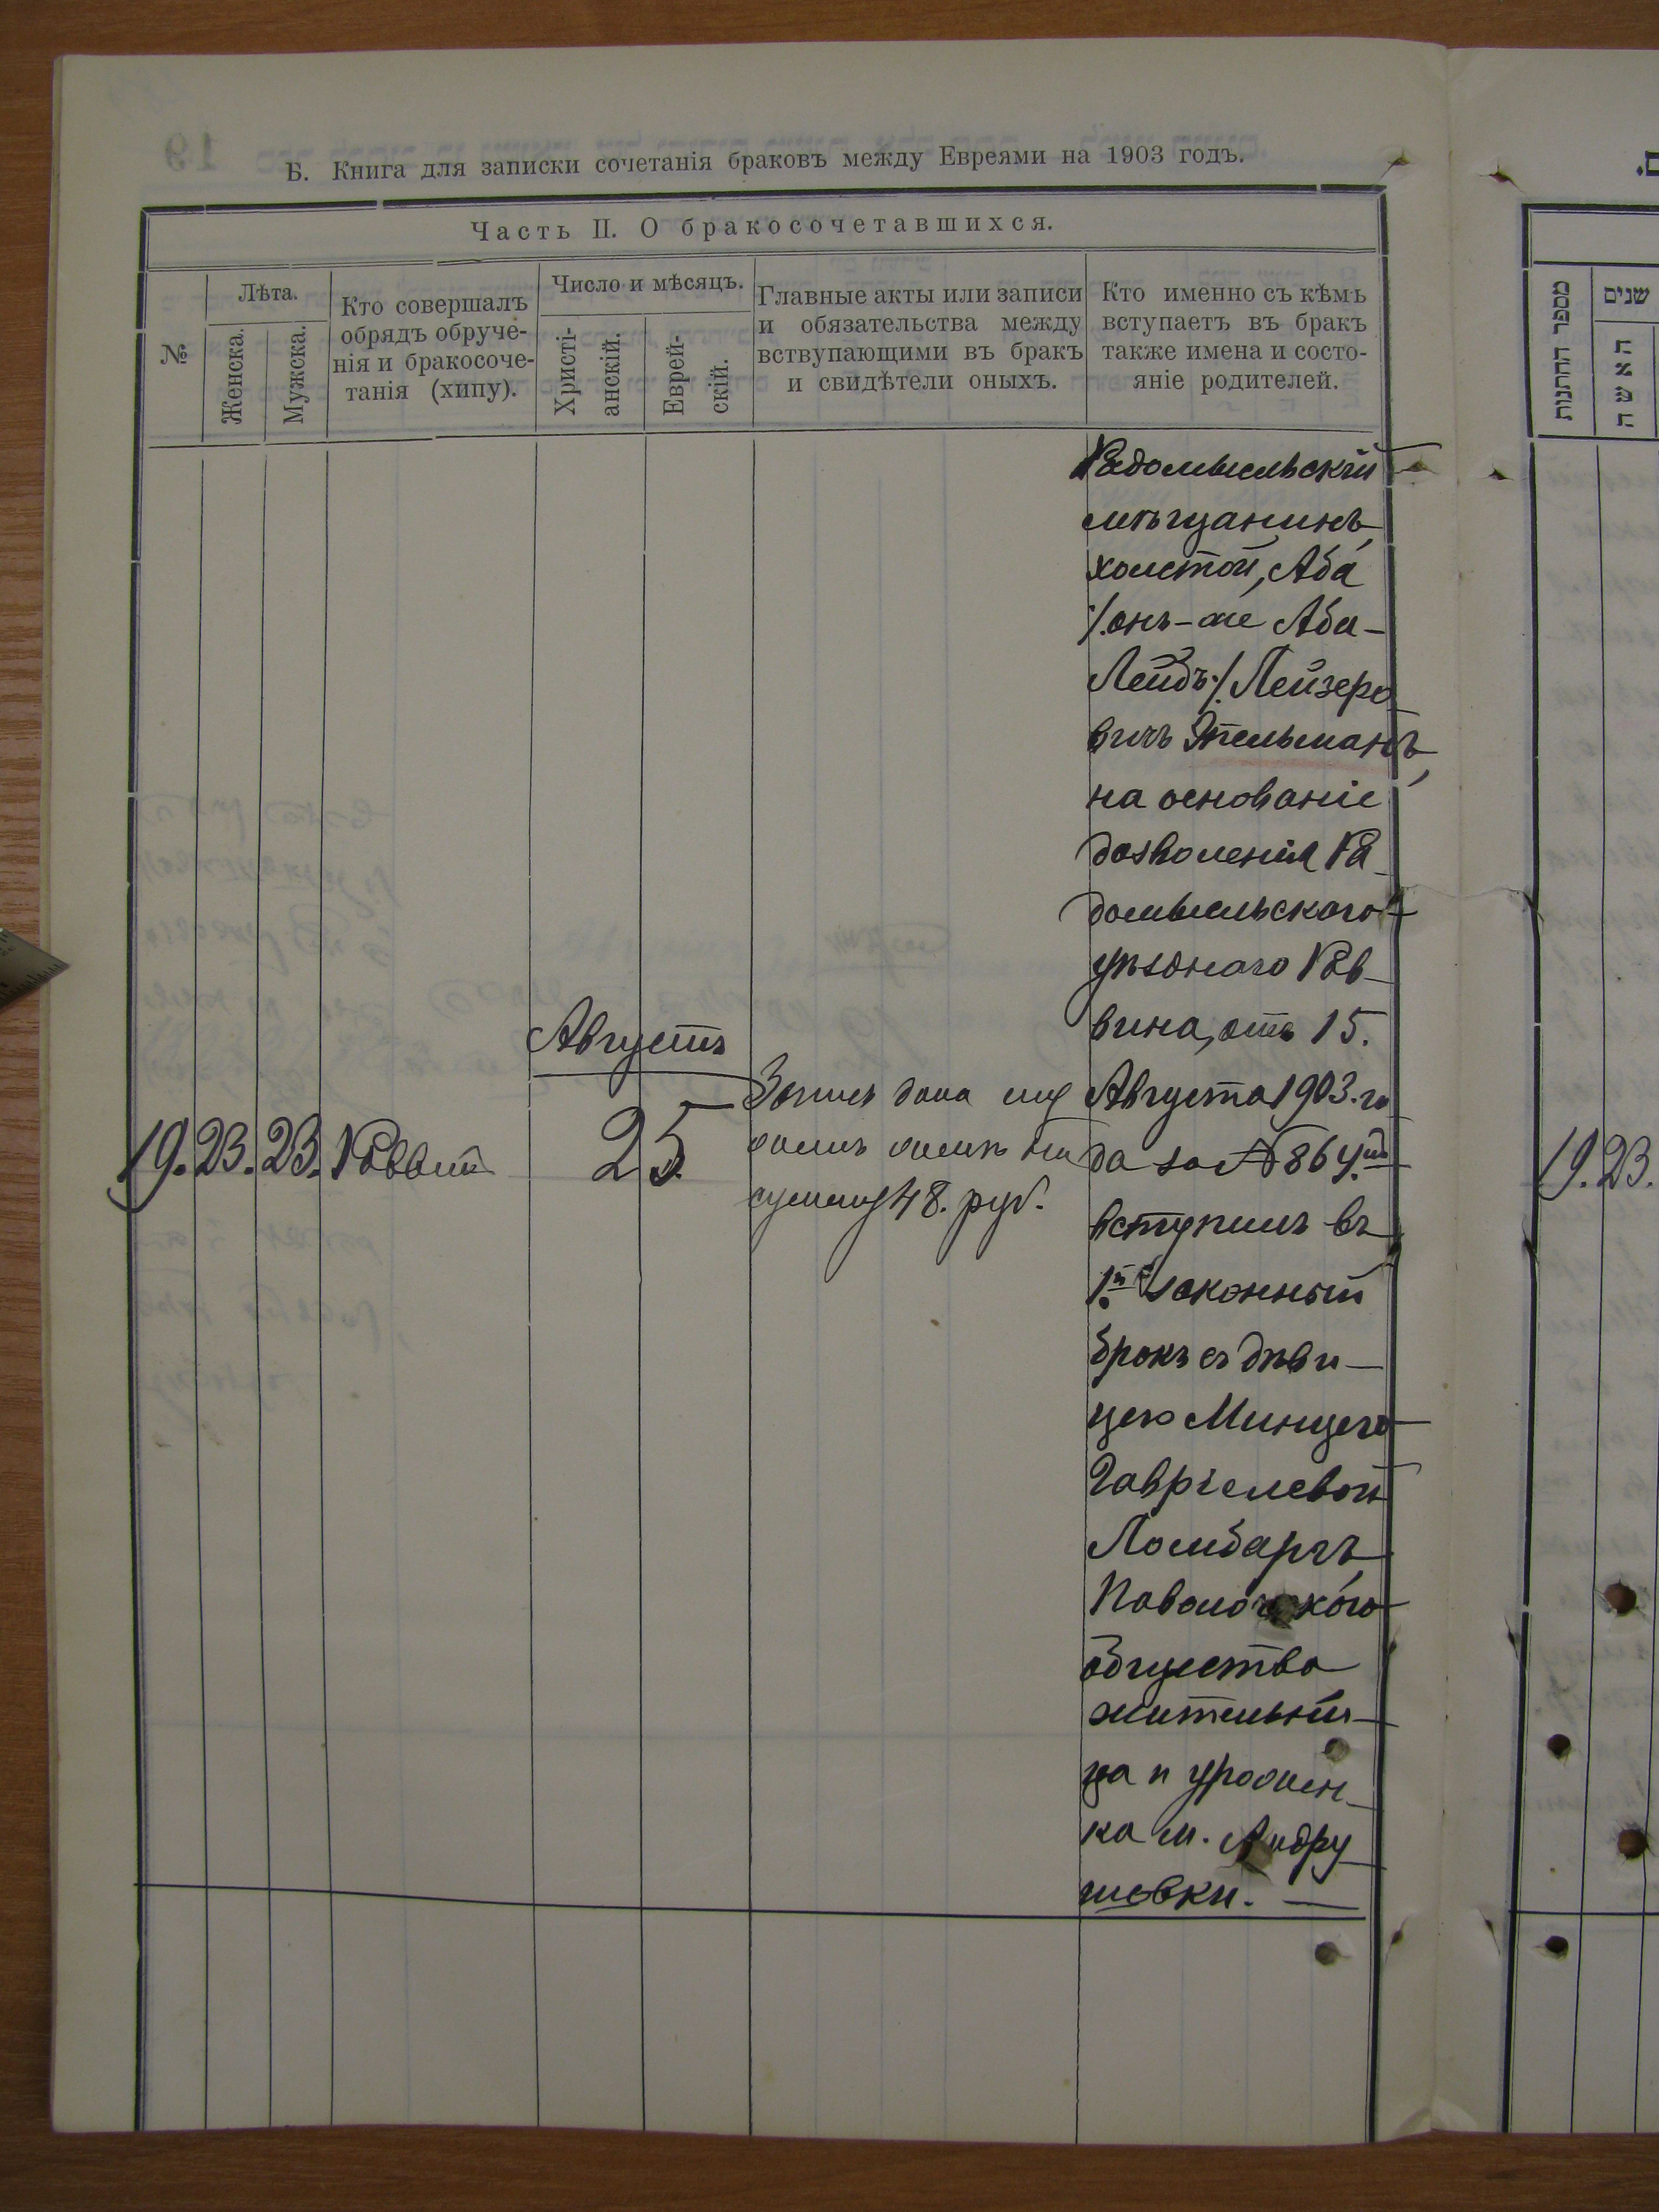 Б. Книга для записки сочетанія браковъ между Евреями на 1903 годъ.
Часть II. О бракосочетавшихся.
№
Лѣта.
Женска.
Мужска.
Кто совершалъ
обрядъ обруче-
нія и бракосоче-
танія (хипу).
Число и мѣсяцъ.
Христі-
анскій.
Еврей-
скій.
Главные акты или записи
и обязательства между
вствупающими въ бракъ
и свидѣтели оныхъ.
Кто именно съ кѣмъ
вступаетъ въ бракъ
также имена и состо-
яніе родителей.
19. 23. 23. Раввин
Августъ
25
Запись дана
на
сумму 48. руб.
Радомысльскій
мѣщанинъ,
холстой, Аба
/. онъ-же Аба-
Лейбъ ./ Лейзеро
вичъ Этельманъ,
на основаніе
дозволенія Ра
домысльскаго
уѣзднаго Рав
вина, отъ 15.
Августа 1903. го
да за № 864.
вступилъ въ
1.й законный
бракъ съ дѣви-
цею Минцею
Гавріелевой
Ломбаргъ,
Паволочскаго
общества
жительни-
ца и урожен
ка м. Андру
шовки. —
מספר החתנות
שנים
האשה
19. 23.